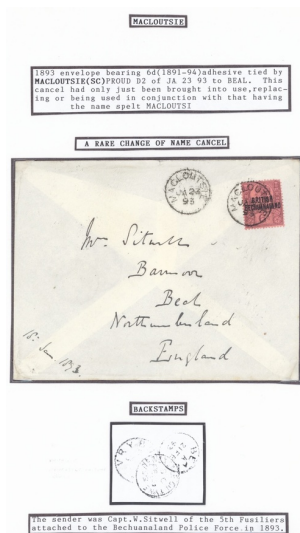 MACLOUTSIE
1893 envelope bearing 6d(1891-94)adhesive tied by
MACLOUTSIE(SC)PROUD D2 of JA 23 93 to BEAL. This
cancel had only just been brought into use,replac-
ing or being used in conjunction with that having
the name spelt MACLOUTSI
A RARE CHANGE OF NAME CANCEL
MACLOUTSIE
JA 23
93
BRITISH
BECHUANALAND
Mrs. Sitwell
Barmoor
Beal
Northumberland
England
BACKSTAMPS
The sender was Capt.W.Sitwell of the 5th Fusiliers
attached to the Bechuanaland Police Force in 1893.